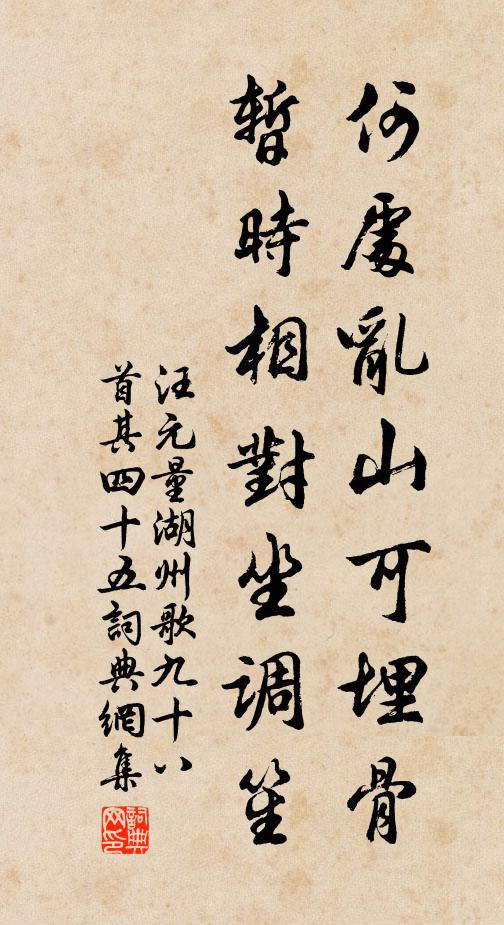 何處亂山可埋骨
暫時相對坐調笙
汪元量湖州歌九十八
首其四十五詞典網集
詞典
网印